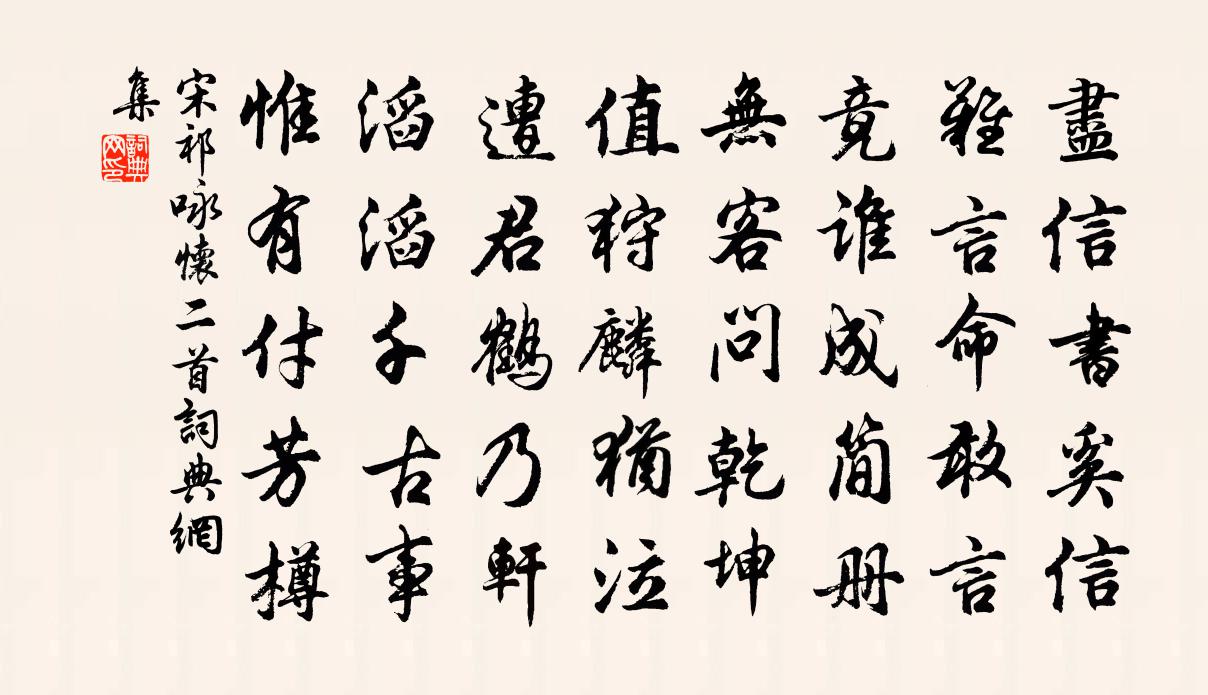 盡信書奚信
難言命敢言
竟誰成简册
無客問乾坤
值狩麟猶泣
遭君鶴乃軒
滔滔千古事
惟有付芳樽
宋祁咏懷二首詞典網
集
詞典
网印